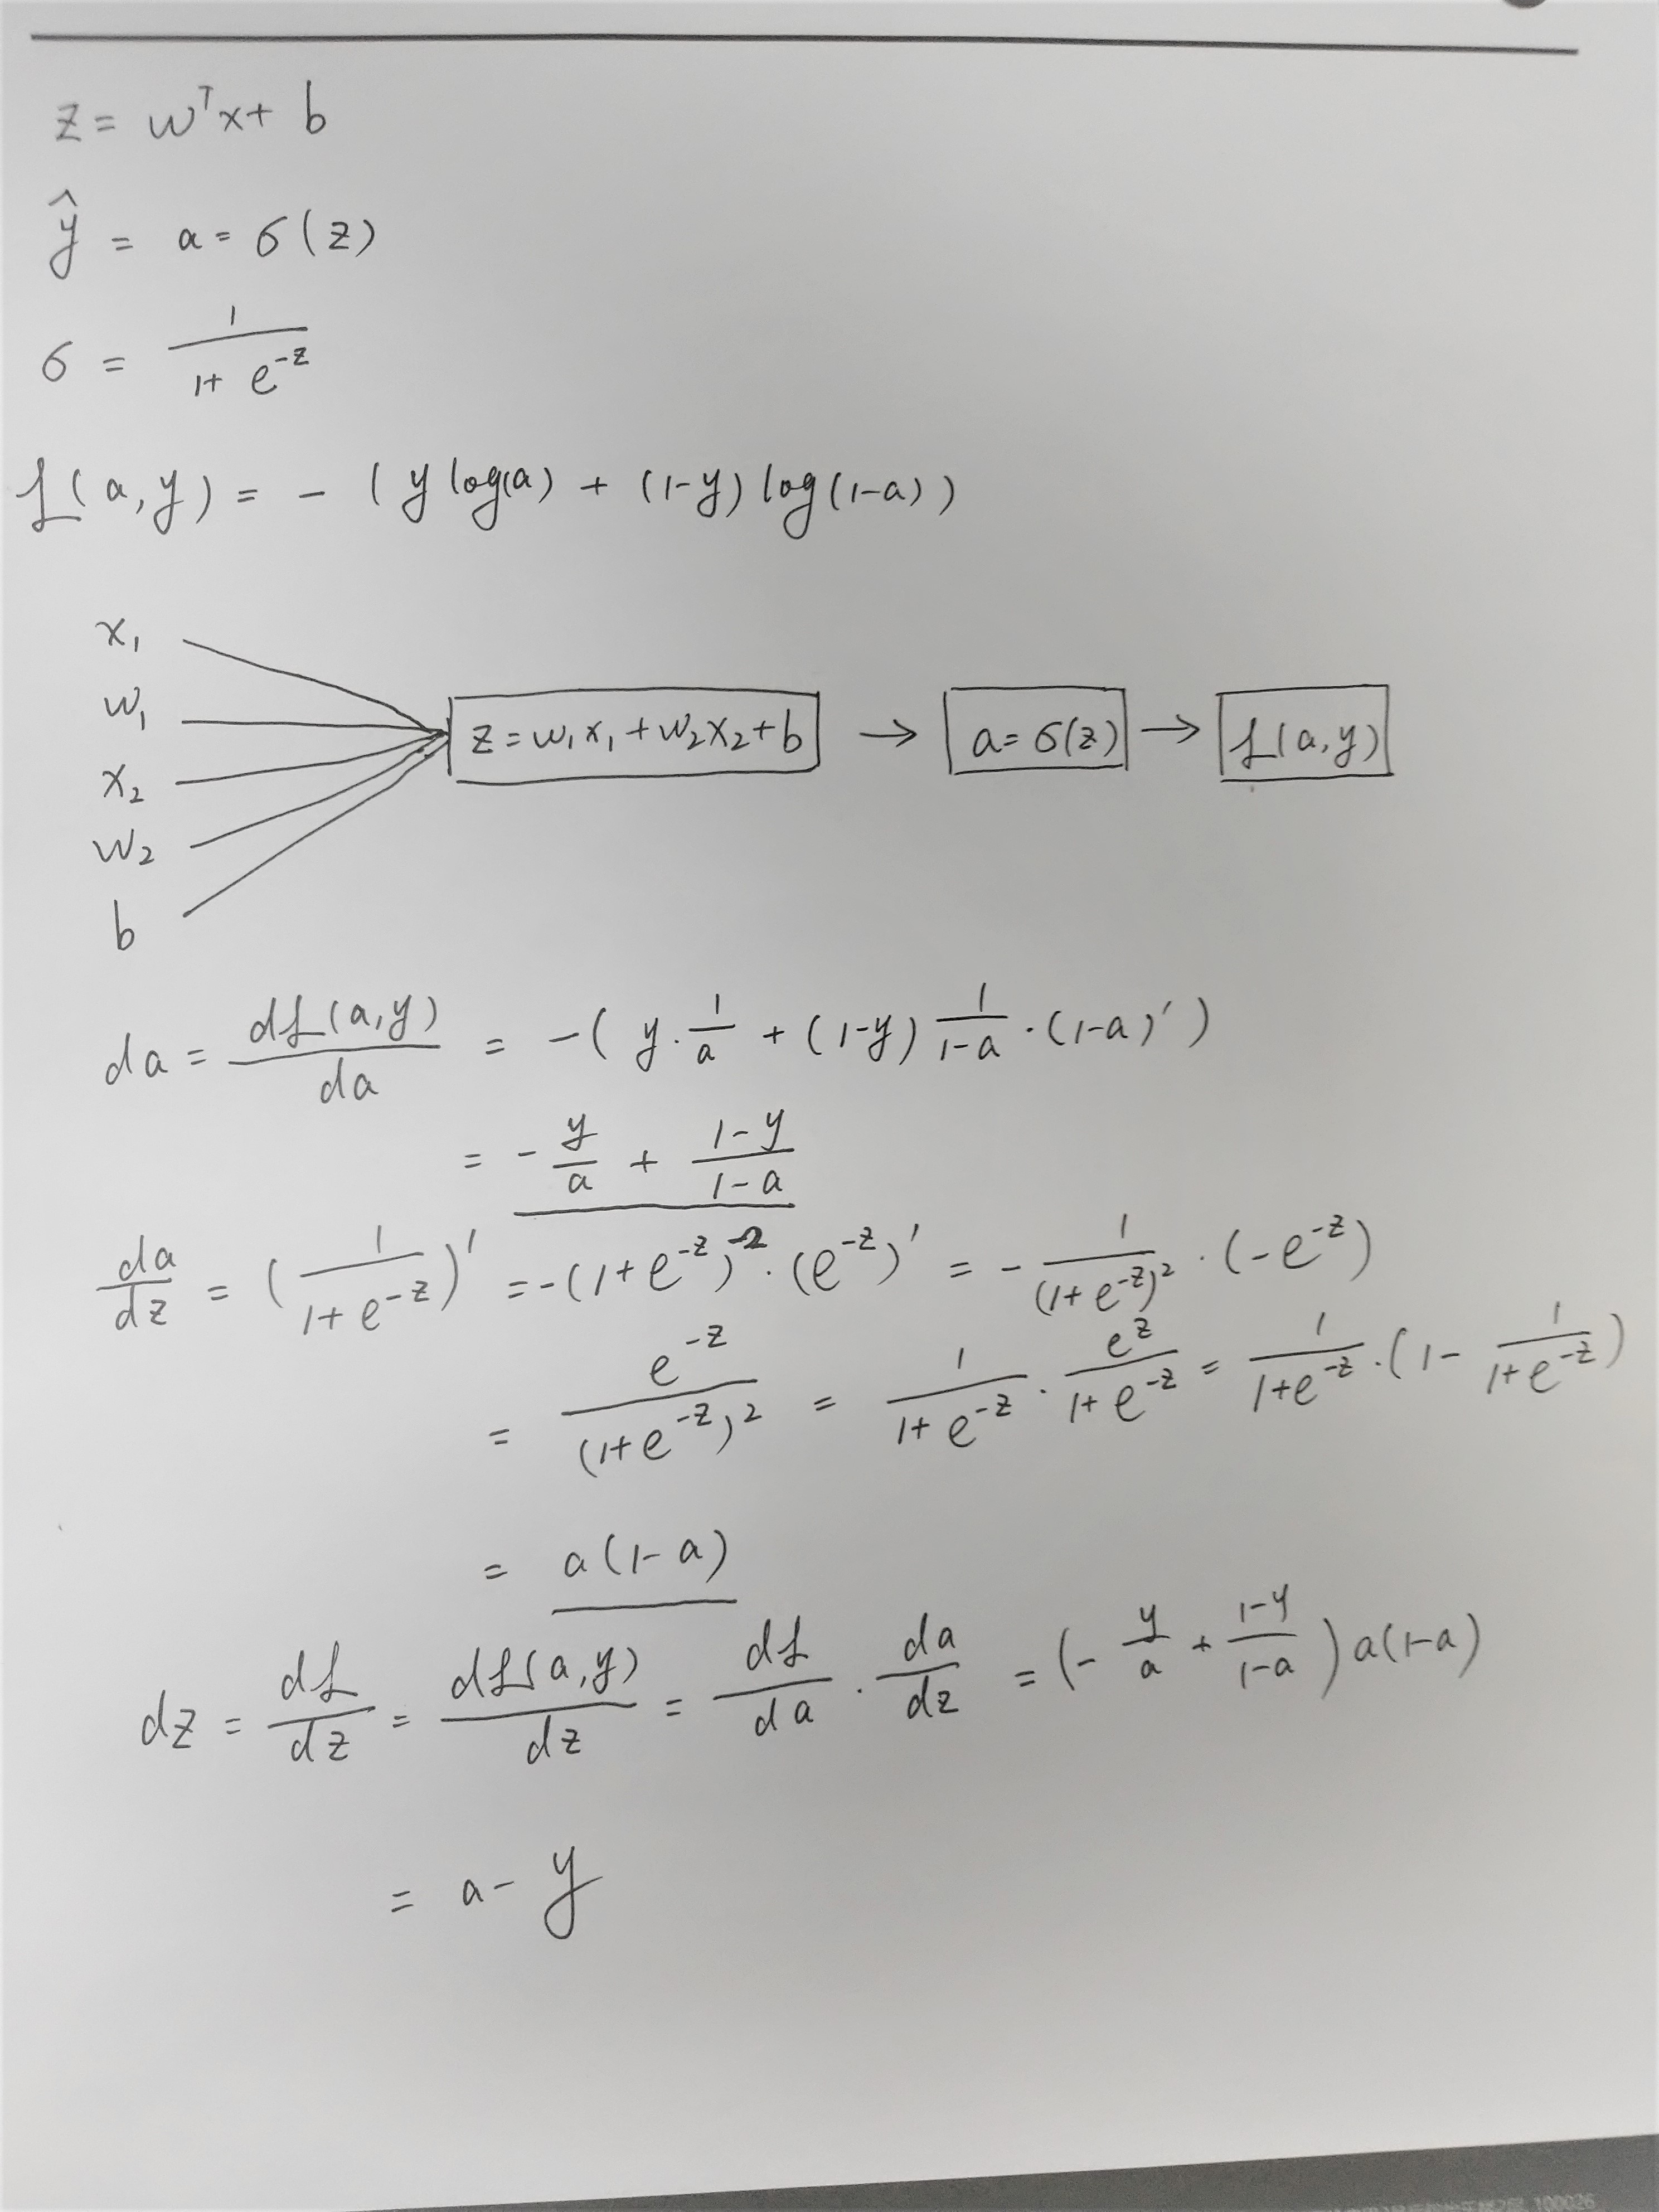 z = wᵀx + b
ŷ = a = σ(z)
σ = 1/(1+e^{-z})
ℒ(a,y) = -(y log(a) + (1-y) log(1-a))
x₁
w₁
x₂
w₂
b
z = w₁x₁ + w₂x₂ + b → a = σ(z) → ℒ(a,y)
da = dℒ(a,y)/da = -(y · 1/a + (1-y) 1/(1-a) · (1-a)′)
= - y/a + (1-y)/(1-a)
da/dz = (1/(1+e^{-z}))′ = -(1+e^{-z})^{-2} · (e^{-z})′ = - 1/(1+e^{-z})² · (-e^{-z})
= e^{-z}/(1+e^{-z})² = 1/(1+e^{-z}) · e^{z}/(1+e^{-z}) = 1/(1+e^{-z}) · (1 - 1/(1+e^{-z}))
= a(1-a)
dz = dℒ/dz = dℒ(a,y)/dz = dℒ/da · da/dz = (- y/a + (1-y)/(1-a)) a(1-a)
= a - y